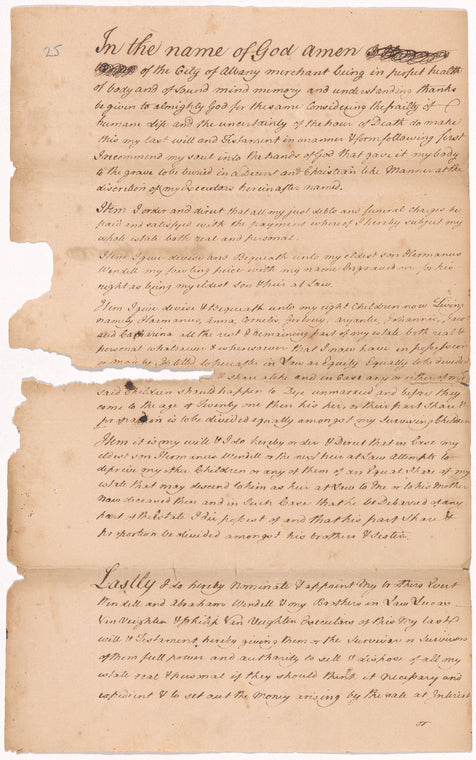 25
In the name of God Amen
of the City of Albany merchant being in perfect health
of body and of Sound mind memory and understanding thanks
be given to almighty God for the same Considering the frailty of
humane life and the uncertainty of the hour of Death do make
this my last will and Testament in manner & form following first
I recommend my soul into the hands of God that gave it my body
to the grave to be buried in a Decent and Christian like Manner at the
discretion of my Executors herein after named.
Item I order and direct that all my just debts and funeral charges be
paid and satisfyed with the payment whereof I hereby subject my
whole estate both real and personal.
Item I give devise and Bequeath unto my eldest son Hermanus
Wendell my fowling peice with my name Engraved on, for his
right as being my eldest son & heir at Law.
Item I give devise & Bequeath unto my eight Children now Living
namely Harmanus, Anna, Cornelis, Ariantie, Johannis,
and Catharina all the rest & remaining part of my estate both real &
personal whatsoever & wheresoever that I now have in possession
or may be Intitled to in Law or Equity Equally to be divided
share alike and in Case any or either of my
said Children should happen to Dye unmarried and before they
come to the age of Twenty one then his her, or their part Share &
proportion is to be divided equally amongst my Surviving Children
Item it is my will & I do hereby order & Direct that in Case my
eldest son Hermanus Wendell or the next heir at Law Attempts to
deprive my other Children or any of them of an Equal Share of my
estate that may descend to him as heir at Law to me or to his Mother
Now deceased then and in Such Case that he be Debarred of any
part of the Estate I die possest of and that his part Share &
proportion be divided amongst his brothers & Sisters.
Lastly I do hereby Nominate & appoint My brothers Evert
Wendell and Abraham Wendell & my Brothers in Law Lucas
Van Veighten & Philip Van Veighten Executors of this My Last
will & Testament, hereby giving them or the Survivor or Survivors
of them full power and authority to sell & dispose of all my
estate real & personal if they should think it necessary and
expedient & to set out the Money arising by the sale at Interest
or